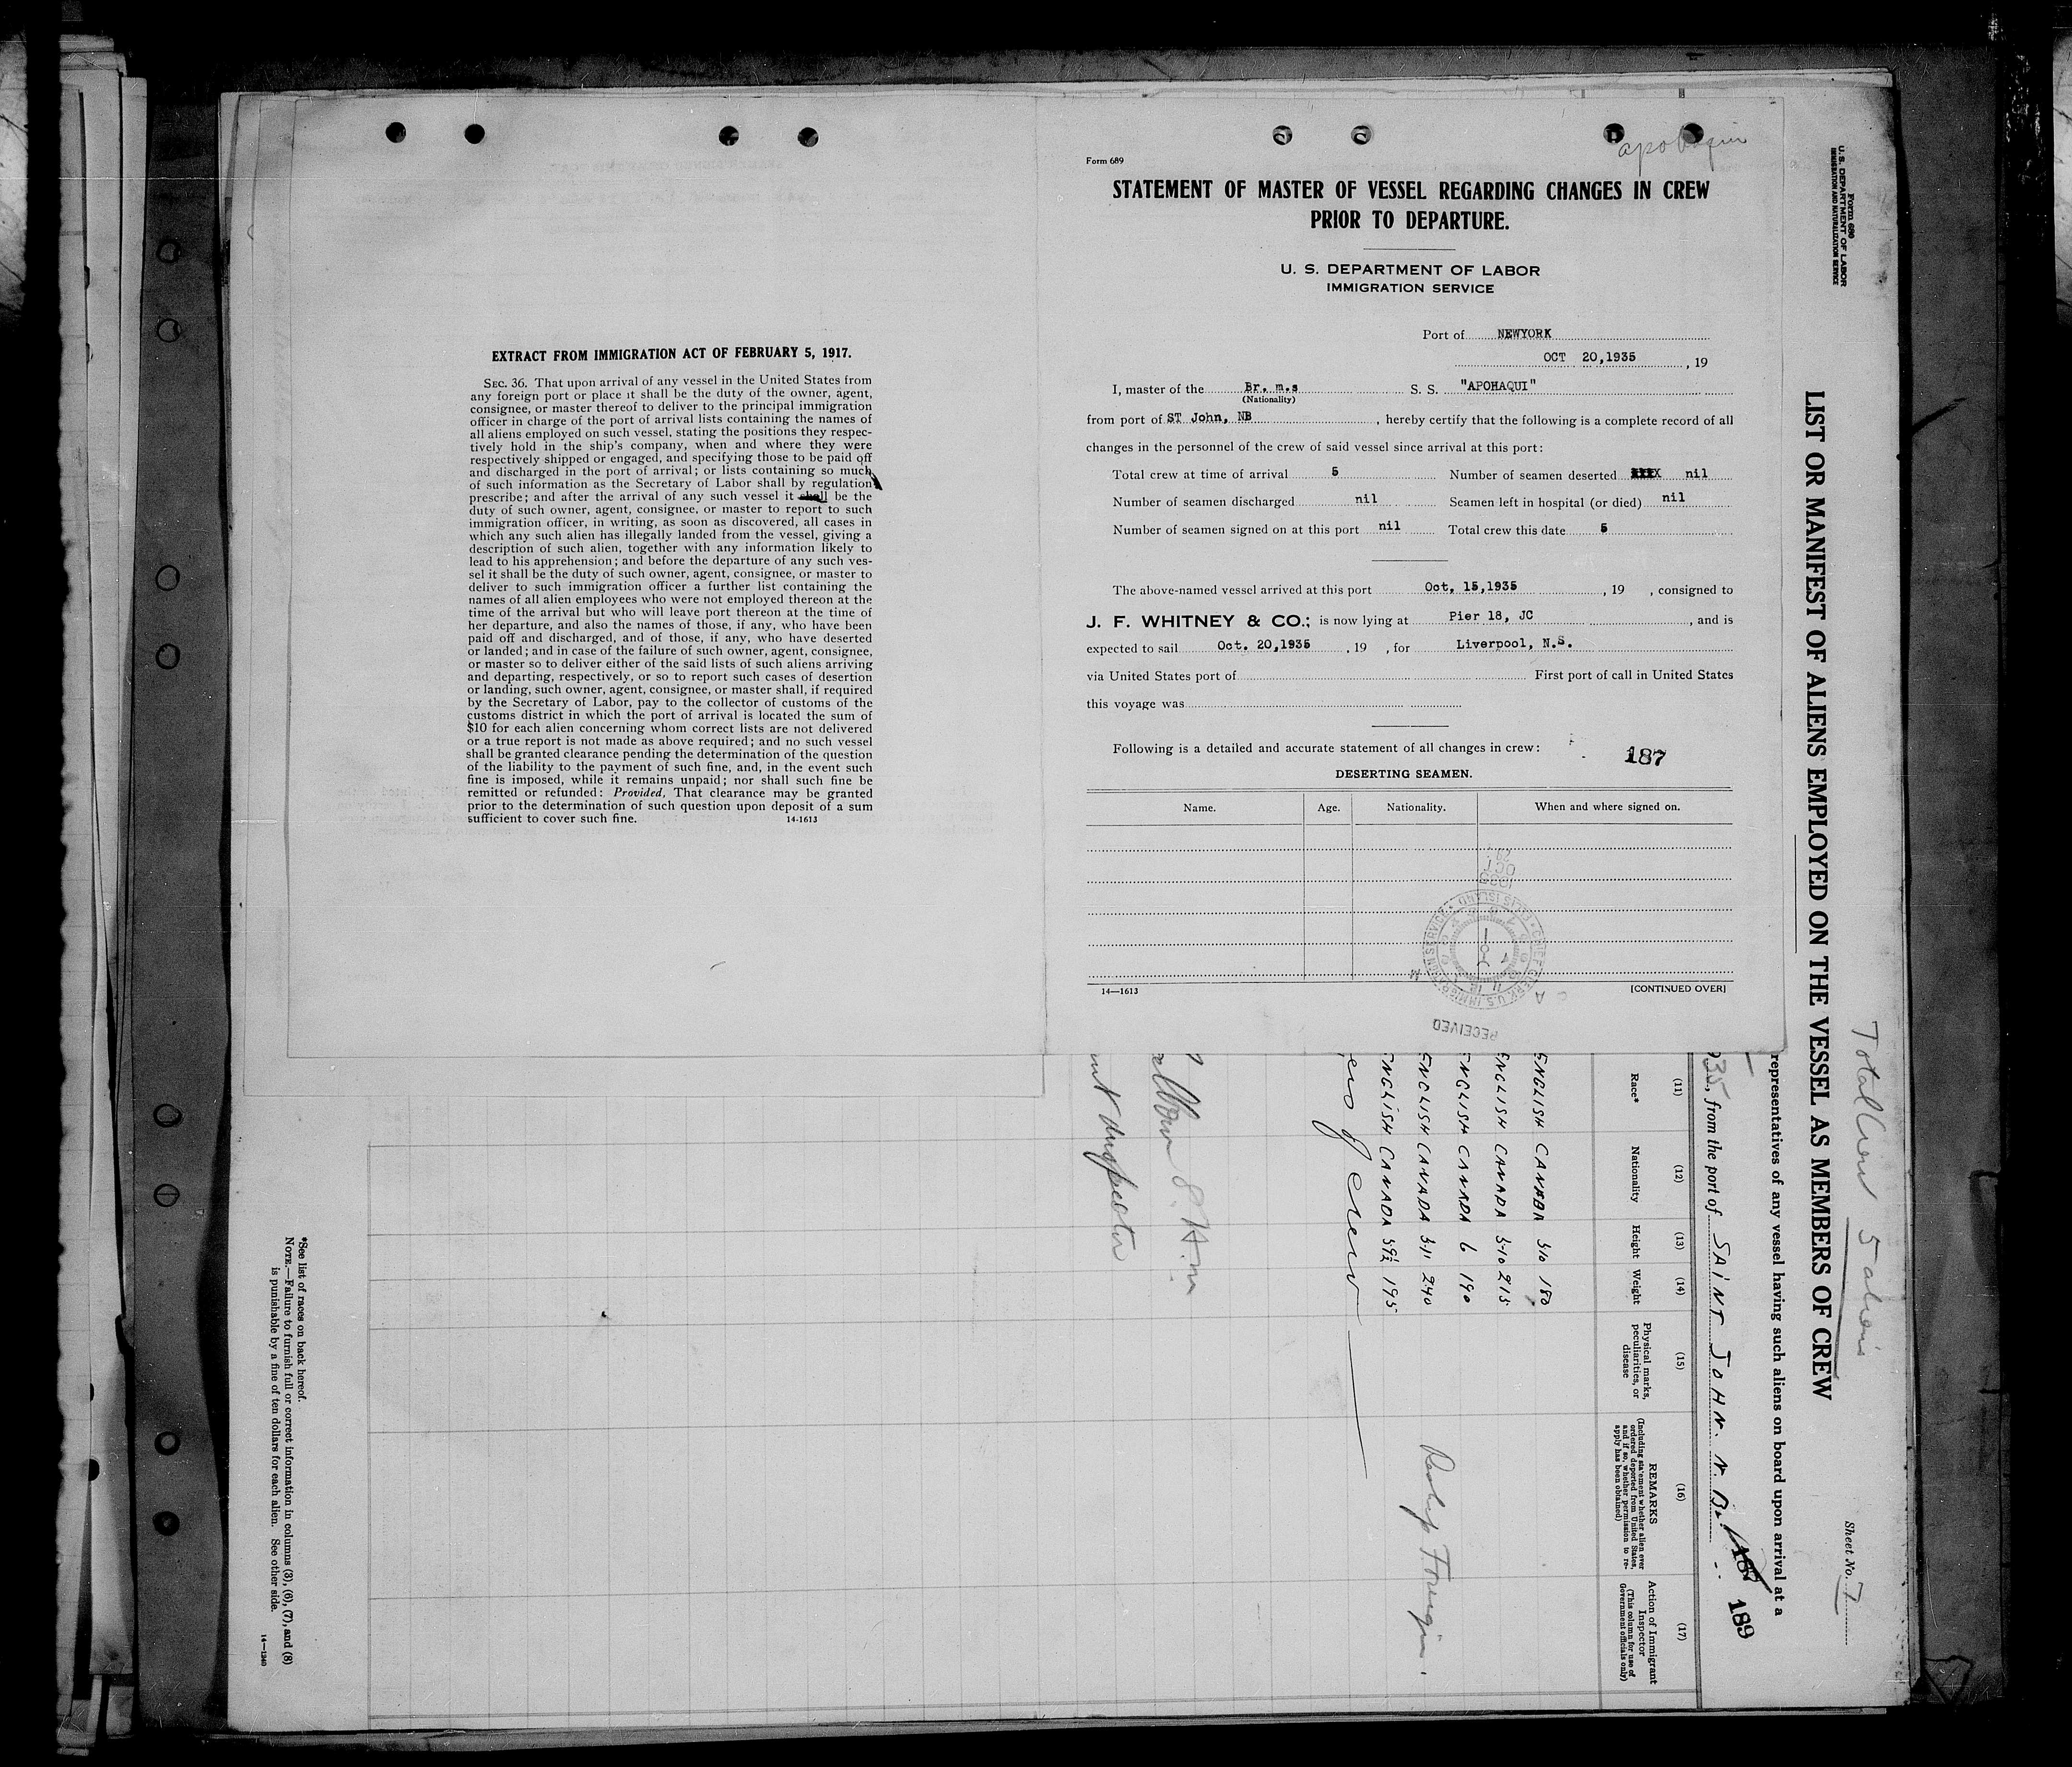 EXTRACT FROM IMMIGRATION ACT OF FEBRUARY 5, 1917.
SEC. 36. That upon arrival of any vessel in the United States from
any foreign port or place it shall be the duty of the owner, agent,
consignee, or master thereof to deliver to the principal immigration
officer in charge of the port of arrival lists containing the names of
all aliens employed on such vessel, stating the positions they respec-
tively hold in the ship's company, when and where they were
respectively shipped or engaged, and specifying those to be paid off
and discharged in the port of arrival; or lists containing so much
of such information as the Secretary of Labor shall by regulation
prescribe; and after the arrival of any such vessel it shall be the
duty of such owner, agent, consignee, or master to report to such
immigration officer, in writing, as soon as discovered, all cases in
which any such alien has illegally landed from the vessel, giving a
description of such alien, together with any information likely to
lead to his apprehension; and before the departure of any such ves-
sel it shall be the duty of such owner, agent, consignee, or master to
deliver to such immigration officer a further list containing the
names of all alien employees who were not employed thereon at the
time of the arrival but who will leave port thereon at the time of
her departure, and also the names of those, if any, who have been
paid off and discharged, and of those, if any, who have deserted
or landed; and in case of the failure of such owner, agent, consignee,
or master so to deliver either of the said lists of such aliens arriving
and departing, respectively, or so to report such cases of desertion
or landing, such owner, agent, consignee, or master shall, if required
by the Secretary of Labor, pay to the collector of customs of the
customs district in which the port of arrival is located the sum of
$10 for each alien concerning whom correct lists are not delivered
or a true report is not made as above required; and no such vessel
shall be granted clearance pending the determination of the question
of the liability to the payment of such fine, and, in the event such
fine is imposed, while it remains unpaid; nor shall such fine be
remitted or refunded: Provided, That clearance may be granted
prior to the determination of such question upon deposit of a sum
sufficient to cover such fine. 14-1613
Form 689
STATEMENT OF MASTER OF VESSEL REGARDING CHANGES IN CREW
PRIOR TO DEPARTURE.
U. S. DEPARTMENT OF LABOR
IMMIGRATION SERVICE
Port of NEWYORK
OCT 20,1935 , 19
I, master of the Br. m.s S. S. "APOHAQUI"
(Nationality)
from port of ST John, NB , hereby certify that the following is a complete record of all
changes in the personnel of the crew of said vessel since arrival at this port:
Total crew at time of arrival 5 Number of seamen deserted nil
Number of seamen discharged nil Seamen left in hospital (or died) nil
Number of seamen signed on at this port nil Total crew this date 5
The above-named vessel arrived at this port Oct, 15,1935 , 19 , consigned to
J. F. WHITNEY & CO.; is now lying at Pier 18, JC , and is
expected to sail Oct. 20,1935 , 19 , for Liverpool, N.S.
via United States port of First port of call in United States
this voyage was
Following is a detailed and accurate statement of all changes in crew: 187
DESERTING SEAMEN.
Name. Age. Nationality. When and where signed on.
14—1613 [CONTINUED OVER]
RECEIVED
CHIEF CLERK U.S. IMMIGRATION SERVICE ELLIS ISLAND
1935 OCT
Form 680
U. S. DEPARTMENT OF LABOR
IMMIGRATION AND NATURALIZATION SERVICE
Total Crew 5 aliens
Sheet No. 1
LIST OR MANIFEST OF ALIENS EMPLOYED ON THE VESSEL AS MEMBERS OF CREW
representatives of any vessel having such aliens on board upon arrival at a
35, from the port of SAINT JOHN. N.B. 187 189
(11) (12) (13) (14) (15) (16) (17)
Race* Nationality Height Weight Physical marks, peculiarities, or disease REMARKS (Including statement whether alien ever ordered deported from United States, and if so, whether permission to re-apply has been obtained) Action of Immigrant Inspector (This column for use of Government officials only)
ENGLISH CANADA 510 180
ENGLISH CANADA 5-10 215
ENGLISH CANADA 6 190
ENGLISH CANADA 5-11 240
ENGLISH CANADA 5 9½ 195
Reship Foreign.
crew
*See list of races on back hereof.
NOTE.—Failure to furnish full or correct information in columns (3), (6), (7), and (8)
is punishable by a fine of ten dollars for each alien. See other side.
14—1240